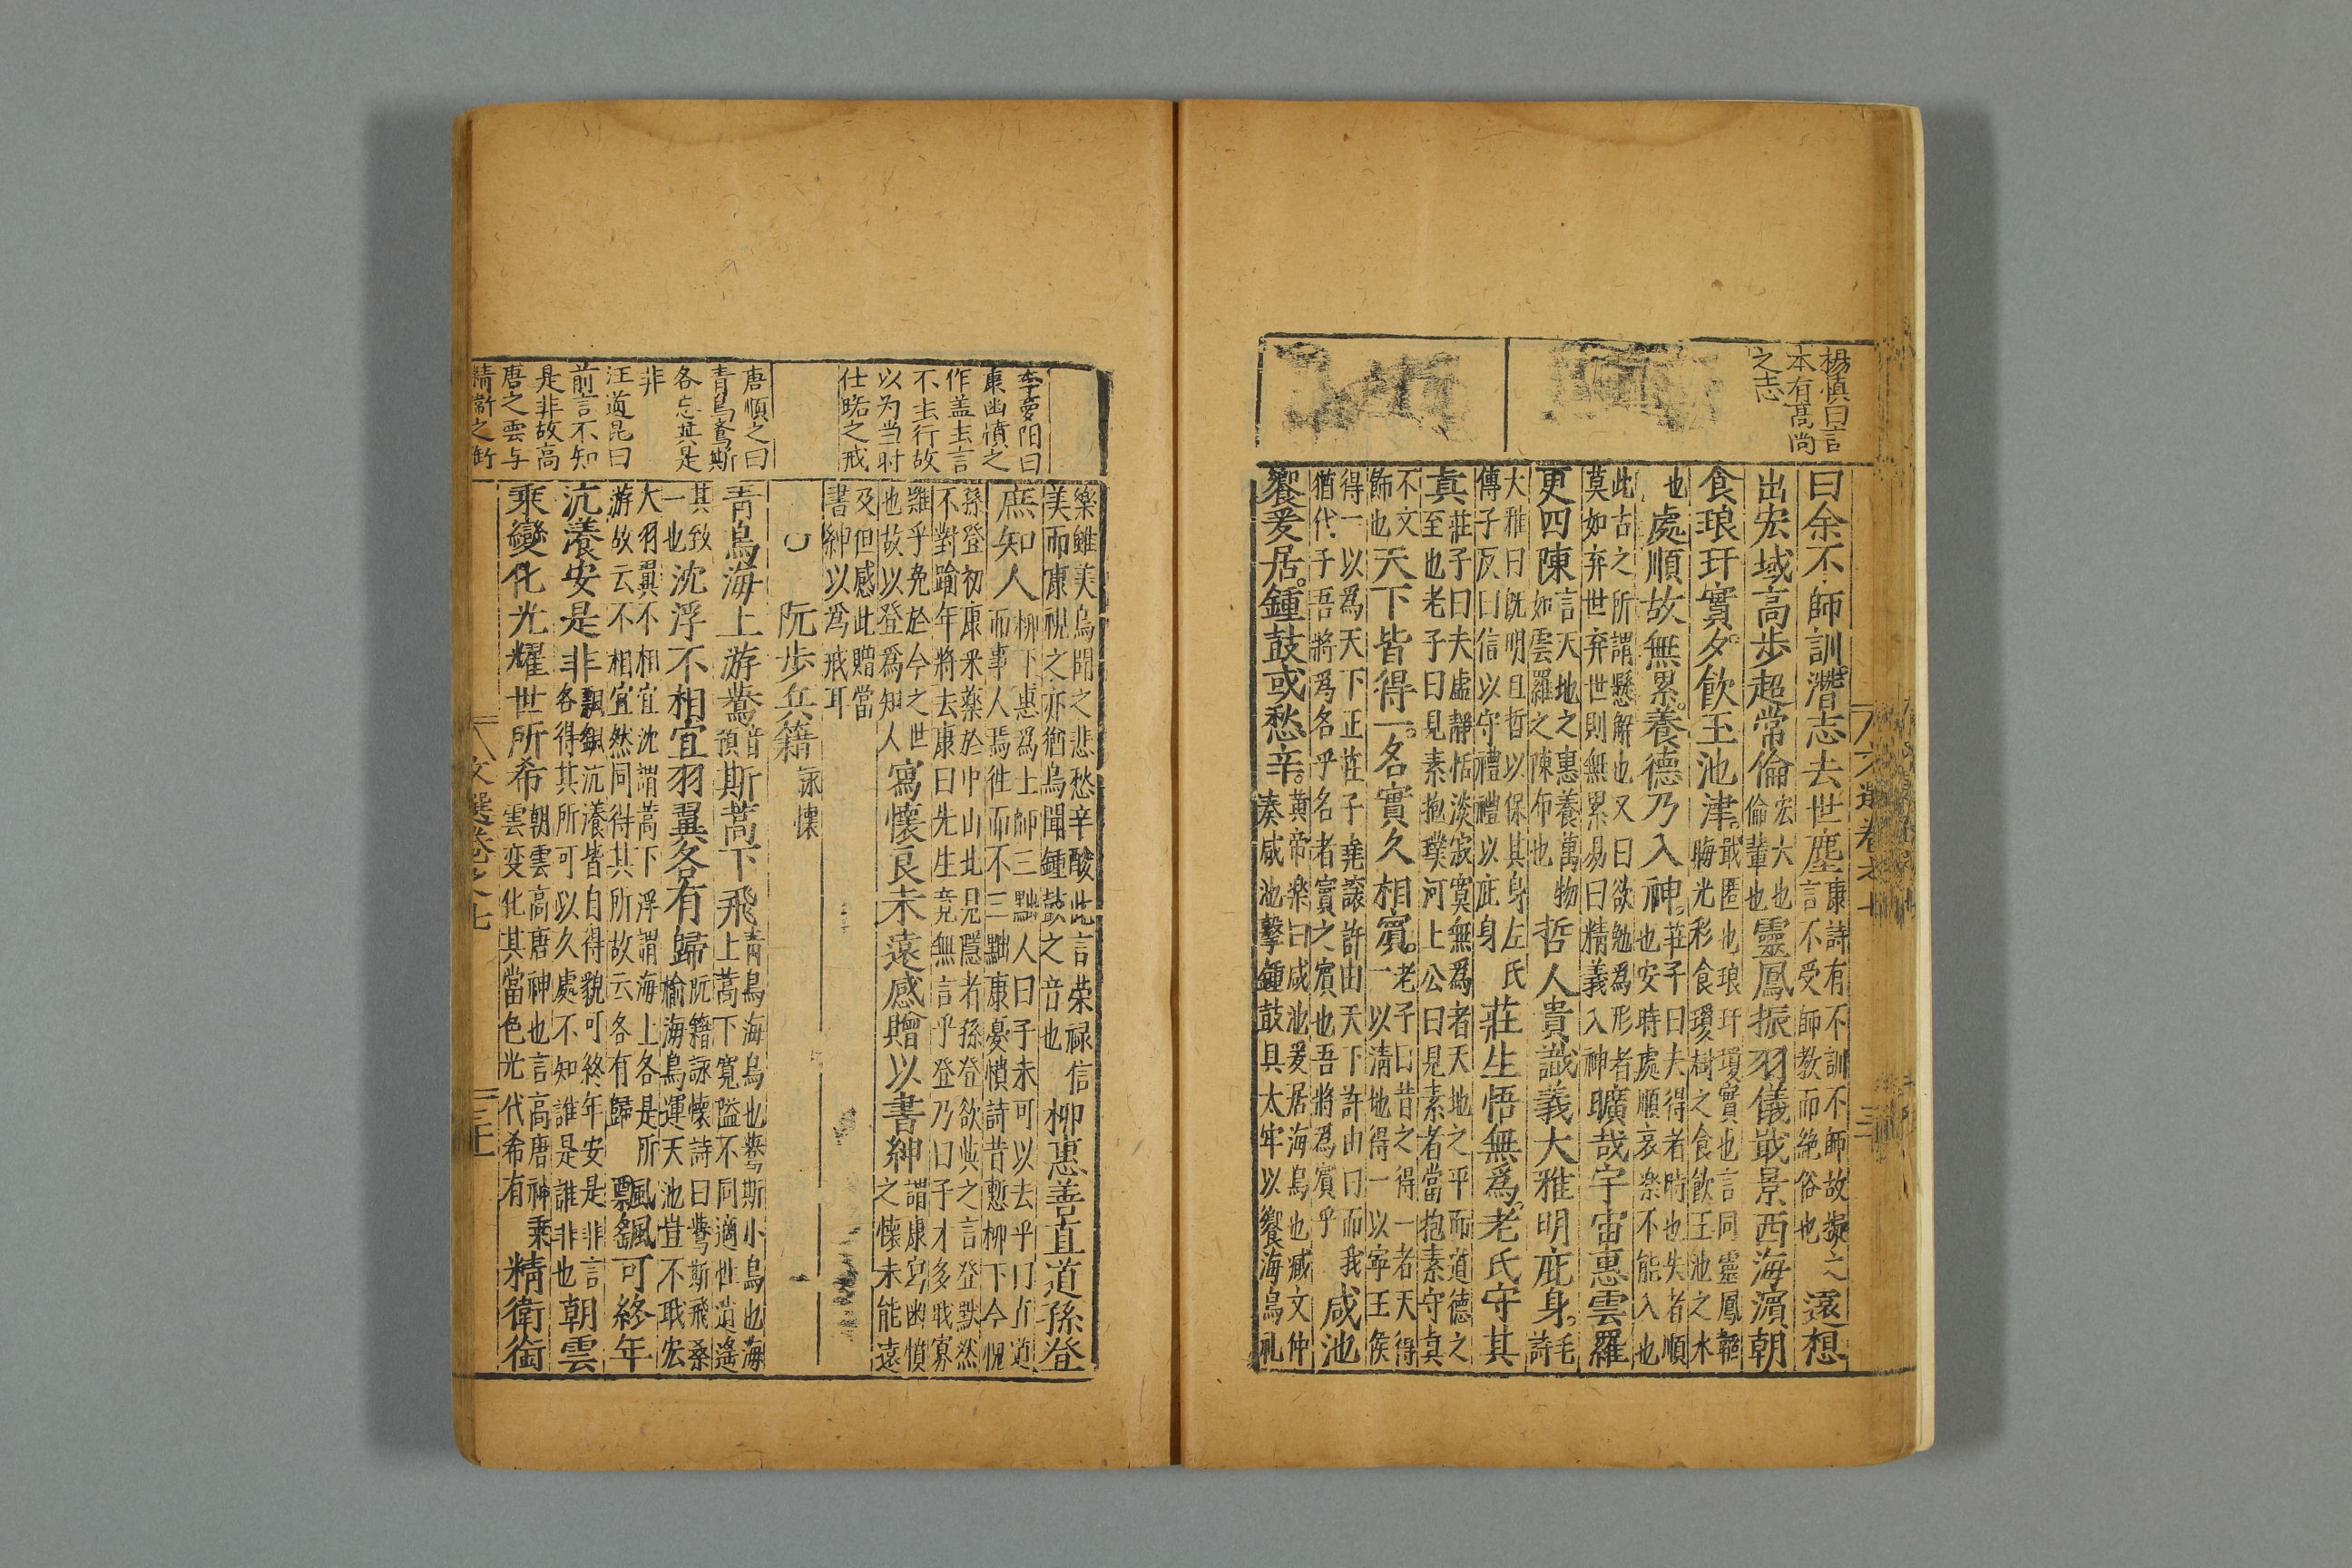 楊慎曰言
本有髙尚
之志
曰余不師訓潛志去世塵康詩有不訓不師故擬之言不受師教而絶俗也遠想
出宏域高步超常倫宏大也倫輩也靈鳳振羽儀戢景西海濱朝
食琅玕實夕飲玉池津戢匿也琅玕瓊實也言同靈鳳韜晦光彩食瓊樹之食飲玉池之水
也處順故無累養德乃入神莊子曰夫得者時也失者順也安時處順哀樂不能入也
此古之所謂懸解也又曰欲勉為形者莫如弃世弃世則無累易曰精義入神曠哉宇宙惠雲羅
更四陳言天地之惠養萬物如雲羅之陳布也哲人貴識義大雅明庇身毛詩
大雅曰旣明且哲以保其身左氏傳子反曰信以守禮禮以庇身莊生悟無爲老氏守其
真莊子曰夫虛靜恬淡寂寞無爲者天地之平而道德之至也老子曰見素抱璞河上公曰見素者當抱素守真
不文飾也天下皆得一名實久相賓老子曰昔之得一者天得一以清地得一以寧王侯
得一以爲天下正莊子堯讓許由天下許由曰而我猶代子吾將爲名乎名者實之賓也吾將爲賓乎咸池
饗爰居鍾鼓或愁辛黃帝樂曰咸池爰居海鳥也臧文仲奏咸池擊鍾鼓具太牢以饗海鳥礼
李夢阳曰
康幽憤之
作盖主言
不主行故
以为当时
仕路之戒
唐順之曰
青鳥鸒斯
各忘其是
非
汪道昆曰
前言不知
是非故高
唐之雲与
精衛之銜
樂雖美鳥聞之悲愁辛酸此言荣禄信美而康視之亦猶鳥聞鍾鼓之音也柳惠善直道孫登
庶知人柳下惠爲士師三黜人曰子未可以去乎曰直道而事人焉往而不三黜康憂憤詩昔慙柳下今愧
孫登初康采藥於中山北見隱者孫登欲與之言登默然不對踰年將去康曰先生竟無言乎登乃曰子才多戢寡
難乎免於今之世也故以登爲知人寫懷良未遠感贈以書紳謂康寫幽憤之懷未能遠
及但感此贈當書紳以爲戒耳
阮步兵籍詠懷
青鳥海上游鸒音預斯蒿下飛青鳥海鳥也鸒斯小鳥也海上蒿下寛隘不同適世逍遙
其致一也沈浮不相宜羽翼各有歸阮籍詠懷詩曰鸒斯飛桑榆海鳥運天池豈不戢宏
大羽翼不相宜沈謂蒿下浮謂海上各是所游故云不相宜然同得其所故云各有歸飄颻可終年
沆瀁安是非飄颻沆瀁皆自得貌可終年安是非言各得其所可以久處不知誰是誰非也朝雲
乘變化光耀世所希朝雲高唐神也言高唐神乘雲变化其當色光代希有精衛銜
文選卷之七